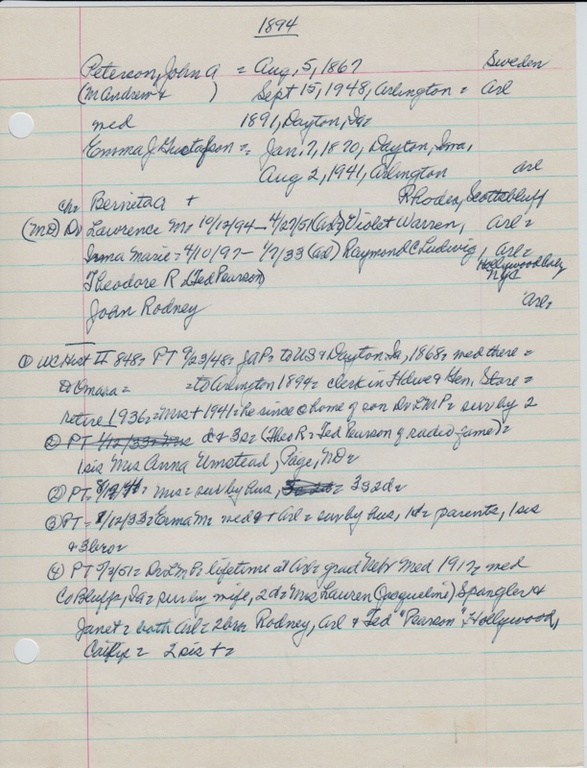 1894
Peterson, John A = Aug, 5, 1867 Sweden
(m Andrew & ) Sept 15, 1948, Arlington = Arl
med 1891, Dayton, Ia=
Emma J Gustafson = Jan, 7, 1870, Dayton, Iowa,
Aug 2, 1941, Arlington Arl
ch= Bernita A + Rhodes, Scottsbluff
(MD) Dr Lawrence M= 10/12/94 - 4/27/51 (Ar) Violet Warren, Arl=
Irma Marie = 4/10/97 - 1/7/33 (Ar) Raymond C Ludwig, Arl=
Theodore R (Ted Pearson) Hollywood Calif
NYC
John Rodney Arl=
① WC Hist II 848= PT 9/23/48= JAP= to US & Dayton, Ia, 1868= med there=
to Omaha = to Arlington 1894= clerk in Hdwe & Gen. Store=
retire 1936= Mrs + 1941= he since @ home of son Dr LMP= surv by 2
d & 3s= (Theo R= Ted Pearson of radio fame)=
1 sis Mrs Anna Umstead, Page, ND=
② PT= Mrs= surv by hus, 3s 2d=
③ PT= 1/12/33= Erma M= med & + Arl= surv by hus, 1d= parents, 1 sis
& 3 bro=
④ PT 5/3/51= Dr LMP= lifetime at Ar= grad Nebr Med 1917, med
Co Bluffs, Ia= surv by wife, 2d= Mrs Lauren (Jacqueline) Spangler &
Janet= both Arl= 2 bro= Rodney, Arl & Ted "Pearson", Hollywood,
Calif= 2 sis +=